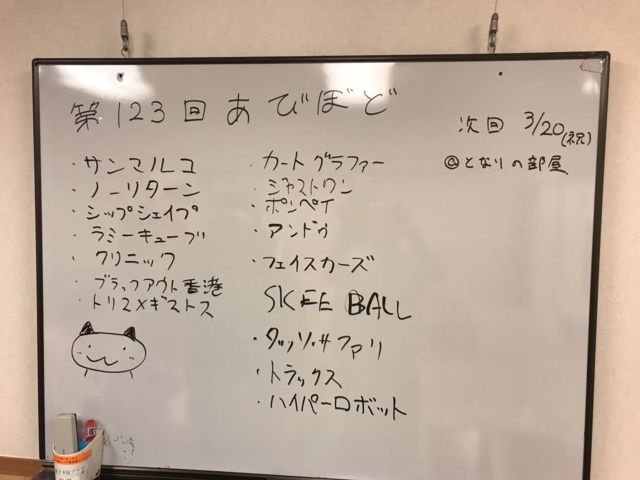 第123回 あびぼど
次回 3/20(祝)
@となりの部屋
・サンマルコ
・ノーリターン
・シップシェイプ
・ラミーキューブ
・クリニック
・ブラックアウト香港
・トリスメギストス
・カートグラファー
・ジャストワン
・ポンペイ
・アンドゥ
・フェイスカーズ
SKEE BALL
・タッソ・サファリ
・トラックス
・ハイパーロボット